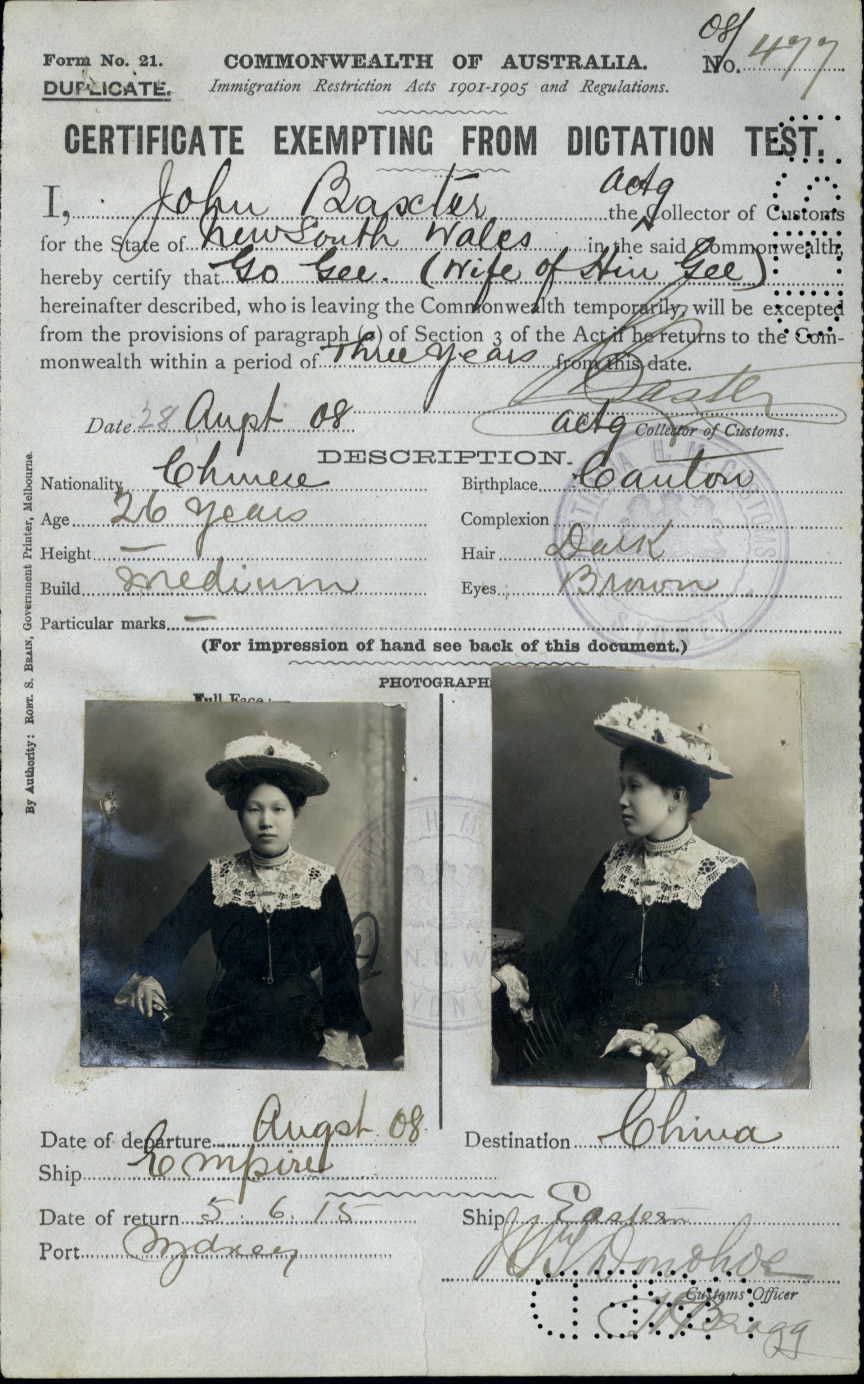 Form No. 21.
COMMONWEALTH OF AUSTRALIA.
08/
No. 477
DUPLICATE.
Immigration Restriction Acts 1901-1905 and Regulations.
CERTIFICATE EXEMPTING FROM DICTATION TEST.
I, John Baxter actg the Collector of Customs
for the State of New South Wales in the said Commonwealth,
hereby certify that Go Gee. (Wife of Hin Gee)
hereinafter described, who is leaving the Commonwealth temporarily, will be excepted
from the provisions of paragraph (a) of Section 3 of the Act if he returns to the Com-
monwealth within a period of Three Years from this date.
J Baxter
Date 28 Augst 08 actg Collector of Customs.
DESCRIPTION.
Nationality Chinese Birthplace Canton
Age 26 Years Complexion
Height — Hair Dark
Build medium Eyes Brown
Particular marks —
(For impression of hand see back of this document.)
PHOTOGRAPH
Full Face:—
By Authority: ROBT. S. BRAIN, Government Printer, Melbourne.
H. M. CUSTOMS
SYDNEY
N. S. W
Date of departure Augst 08 Destination China
Ship Empire
Date of return 5.6.15 Ship Eastern
Port Sydney Donohoe
Customs Officer
Bragg